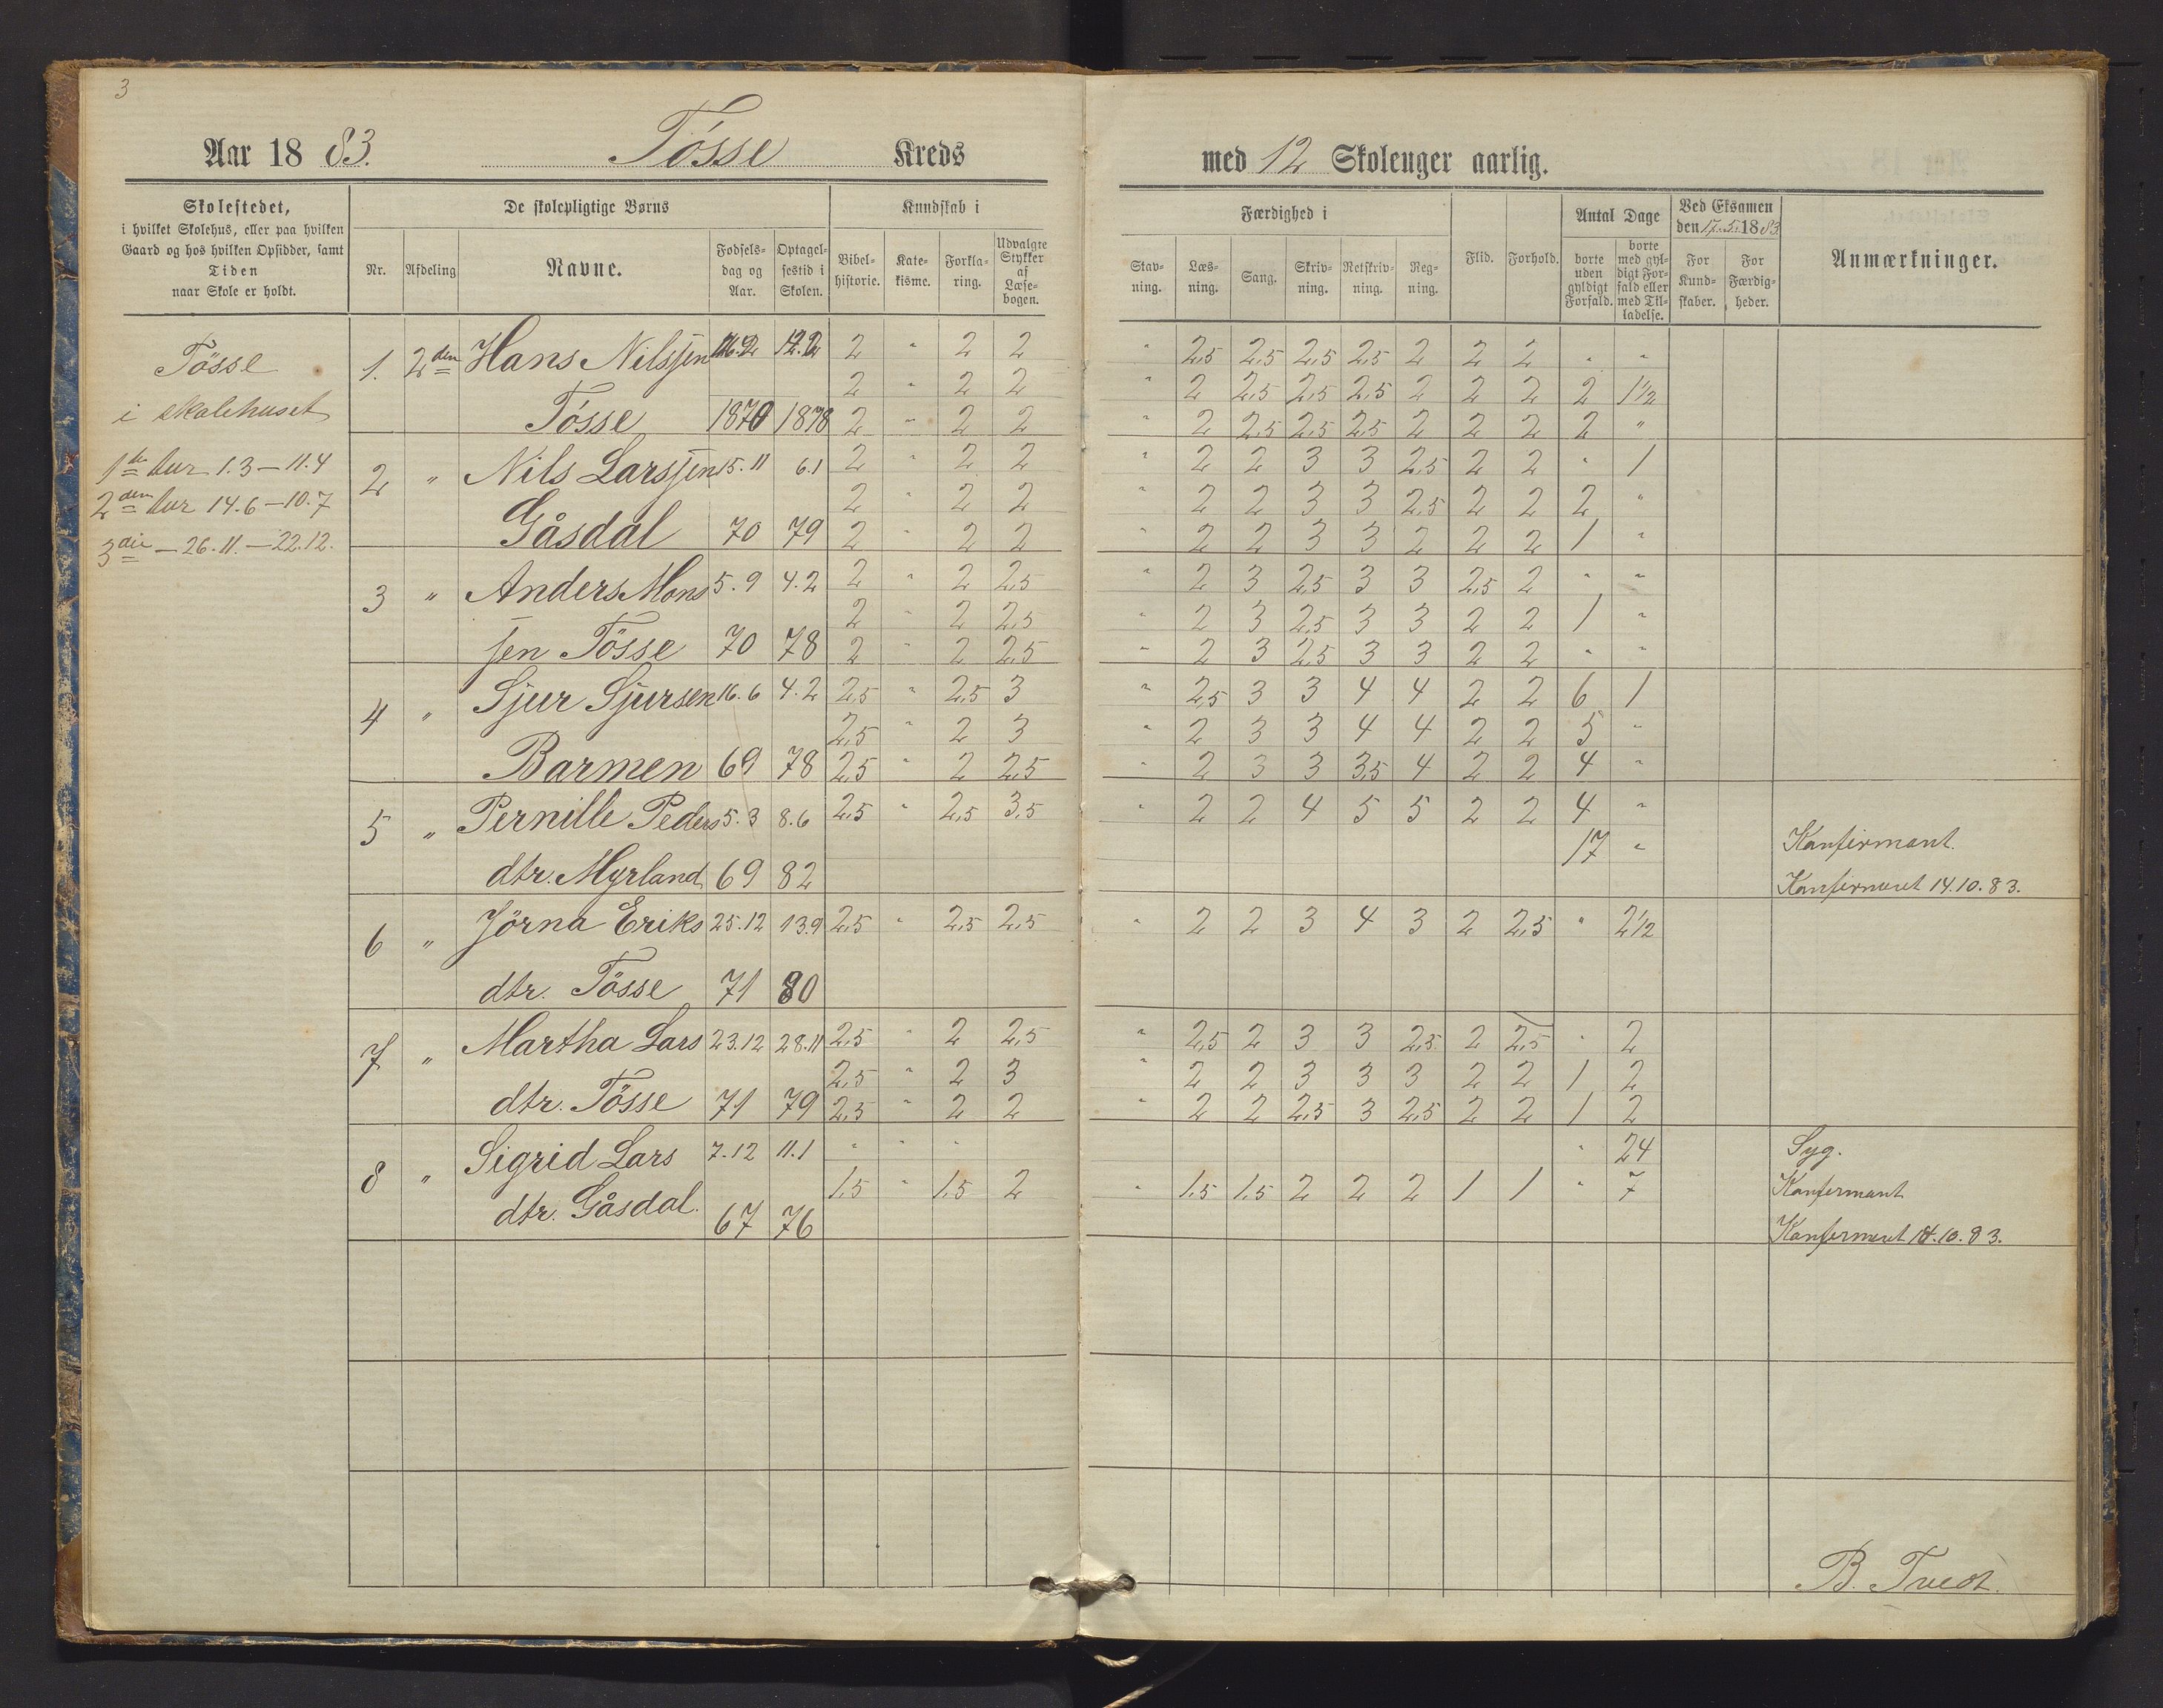 3
Aar 18 83. Tösse Kreds
med 12 Skoleuger aarlig.
Skolestedet,
i hvilket Skolehus, eller paa hvilken
Gaard og hos hvilken Opsidder, samt
Tiden
naar Skole er holdt.
De skolepligtige Børns
Nr. Afdeling Navne. Fødselsdag og Aar. Optagelsestid i Skolen.
Kundskab i
Bibelhistorie. Katekisme. Forklaring. Udvalgte Stykker af Læsebogen.
Færdighed i
Stavning. Læsning. Sang. Skrivning. Retskrivning. Regning. Flid. Forhold.
Antal Dage
borte uden gyldigt Forfald. borte med gyldigt Forfald eller med Tilladelse.
Ved Eksamen
den 17.5. 18 83
For Kundskaber. For Færdigheder.
Anmærkninger.
Tösse
i skolehuset
1ste tur 1.3 – 11.4
2den tur 14.6 – 10.7
3die – 26.11. – 22.12.
1. 2den Hans Nilssen 12.2 2 " 2 2 " 2,5 2,5 2,5 2,5 2 2 2 " "
2 " 2 2 " 2 2,5 2,5 2,5 2 2 2 2 1 1/2
Tösse 1870 1878 2 " 2 2 " 2 2,5 2,5 2,5 2 2 2 2 "
2 " Nils Larssen 15.11 6.1 2 " 2 2 " 2 2 3 3 2,5 2 2 " 1
2 " 2 2 " 2 2 3 3 2,5 2 2 2 "
Gåsdal 70 79 2 " 2 2 " 2 2 3 3 2 2 2 1 "
3 " Anders Mons 5.9 4.2 2 " 2 2,5 " 2 3 2,5 3 3 2,5 2 " "
2 " 2 2,5 " 2 3 2,5 3 3 2 2 1 "
sen Tösse 70 78 2 " 2 2,5 " 2 3 2,5 3 3 2 2 " "
4 " Sjur Sjursen 16.6 4.2 2,5 " 2,5 3 " 2,5 3 3 4 4 2 2 6 1
2,5 " 2 3 " 2 3 3 4 4 2 2 5 "
Barmen 69 78 2,5 " 2 2,5 " 2 3 3 3,5 4 2 2 4 "
5 " Pernille Peders 5.3 8.6 2,5 " 2,5 3,5 " 2 2 4 5 5 2 2 4 "
17 " Konfirmant.
dtr. Myrland 69 82 Konfirmeret 14.10.83.
6 " Jörna Eriks 25.12 13.9 2,5 " 2,5 2,5 " 2 2 3 4 3 2 2,5 " 2 1/2
dtr. Tösse 71 80
7 " Martha Lars 23.12 28.11 2,5 " 2 2,5 " 2,5 2 3 3 2,5 2 2,5 " 2
2,5 " 2 3 " 2 2 3 3 3 2 2 1 2
dtr. Tösse 71 79 2,5 " 2 2 " 2 2 2,5 3 2,5 2 2 1 2
8 " Sigrid Lars 7.12 11.1 " " " " 24 Syg.
1,5 " 1,5 2 " 1,5 1,5 2 2 2 1 1 " 7 Konfermant
dtr. Gåsdal. 67 76
Konfermeret 14.10.83.
B. Tvedt.